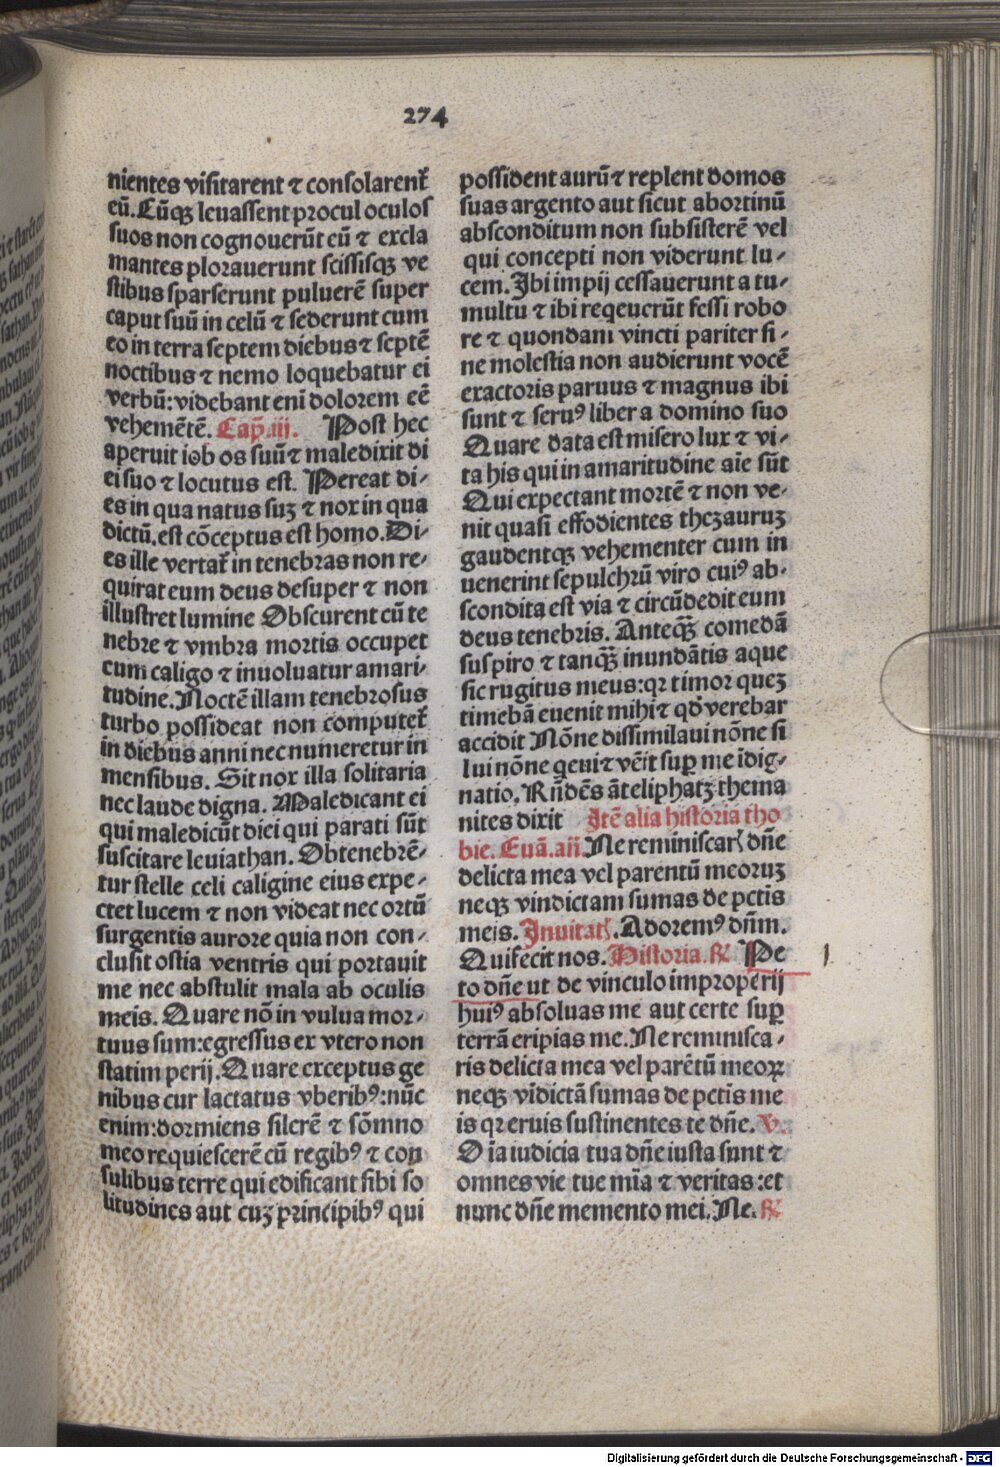 274
nientes visitarent ⁊ consolarent᷑
eū. Cūqꝫ leuassent procul oculos
suos non cognouerūt eū ⁊ excla
mantes plorauerunt scissisqꝫ ve
stibus sparserunt puluerē super
caput suū in celū ⁊ sederunt cum
eo in terra septem diebus ⁊ septē
noctibus ⁊ nemo loquebatur ei
verbū: videbant eni dolorem eē
vehemētē. Cap̄. iij. Post hec
aperuit iob os suū ⁊ maledixit di
ei suo ⁊ locutus est. Pereat di⸗
es in qua natus suꝫ ⁊ nox in qua
dictū. est cōceptus est homo. Di⸗
es ille vertat᷑ in tenebras non re⸗
quirat eum deus desuper ⁊ non
illustret lumine Obscurent cū te
nebre ⁊ vmbra mortis occupet
cum caligo ⁊ inuoluatur amari⸗
tudine. Noctē illam tenebrosus
turbo possideat non computet᷑
in diebus anni nec numeretur in
mensibus. Sit nox illa solitaria
nec laude digna. Maledicant ei
qui maledicūt diei qui parati sūt
suscitare leuiathan. Obtenebrē⸗
tur stelle celi caligine eius expe⸗
ctet lucem ⁊ non videat nec ortū
surgentis aurore quia non con⸗
clusit ostia ventris qui portauit
me nec abstulit mala ab oculis
meis. Quare nō in vulua mor⸗
tuus sum: egressus ex vtero non
statim perij. Quare exceptus ge
nibus cur lactatus vberibꝰ: nūc
enim: dormiens silerē ⁊ sōmno
meo requiescerē cū regibꝰ ⁊ con
sulibus terre qui edificant sibi so
litudines aut cuꝫ principibꝰ qui
possident aurū ⁊ replent domos
suas argento aut sicut abortinū
absconditum non subsisterē vel
qui concepti non viderunt lu⸗
cem. Ibi impij cessauerunt a tu⸗
multu ⁊ ibi reqeucrūt fessi robo
re ⁊ quondam vincti pariter si⸗
ne molestia non audierunt vocē
exactoris paruus ⁊ magnus ibi
sunt ⁊ seruꝰ liber a domino suo
Quare data est misero lux ⁊ vi⸗
ta his qui in amaritudine aīe sūt
Qui expectant mortē ⁊ non ve⸗
nit quasi effodientes thezauruꝫ
gaudentqꝫ vehementer cum in
uenerint sepulchrū viro cuiꝰ ab⸗
scondita est via ⁊ circūdedit eum
deus tenebris. Anteqꝫ̄ comedā
suspiro ⁊ tanqꝫ̄ inundātis aque
sic rugitus meus: qr timor queꝫ
timebā euenit mihi ⁊ qd̄ verebar
accidit Nōne dissimilaui nōne si
lui nōne q̇eui ⁊ vēit sup̄ me īdig⸗
natio. Rn̄dēs āt eliphatꝫ thema
nites dixit Itē alia historia tho
bie. Euā. añ Ne reminiscarꝭ dn̄e
delicta mea vel parentū meoruꝫ
neqꝫ vindictam sumas de pctīs
meis. Inuitatꝭ. Adoremꝰ dn̄m.
Qui fecit nos. Historia. ℟ Pe
to dn̄e ut de vinculo improperij
huiꝰ absoluas me aut certe sup̄
terrā eripias me. Ne reminisca⸗
ris delicta mea vel parētū meoꝝ
neqꝫ vīdictā sumas de pctīs me
is qr eruis sustinentes te dn̄e. ℣.
Oīa iudicia tua dn̄e iusta sunt ⁊
omnes vie tue mīa ⁊ veritas: et
nunc dn̄e memento mei. Ne. ℟
Digitalisierung gefördert durch die Deutsche Forschungsgemeinschaft - DFG